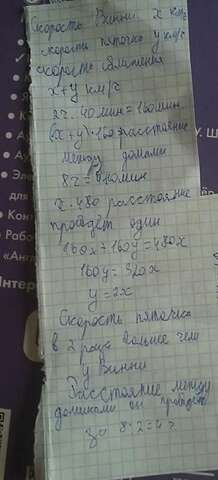 Скорость Винни x км/ч
скорость пяточка y км/ч
скорость сближения
x+y км/ч
2ч 40мин=160мин
(x+y)·160 расстояние
между домами
8ч=480мин
x·480 расстояние
пройдёт один
160x+160y=480x
160y=320x
y=2x
Скорость пяточка
в 2 раза больше чем
у Винни
Расстояние между
домиками он пройдёт
за 8:2=4ч